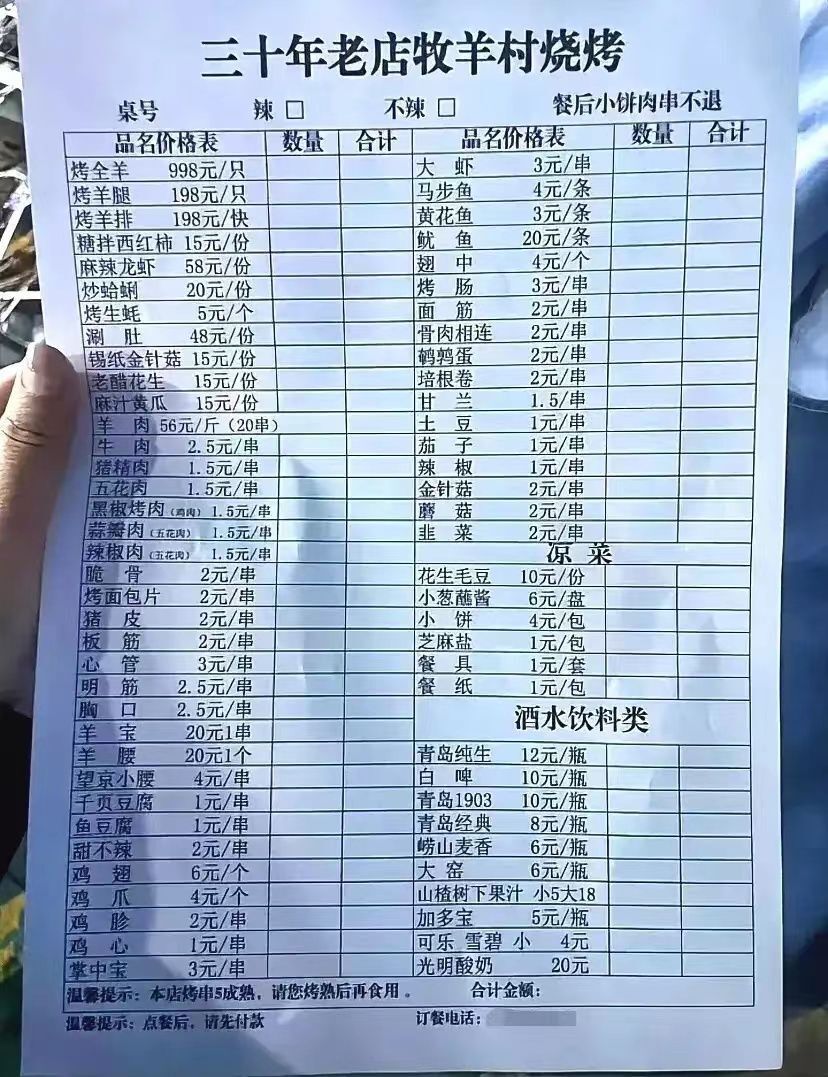 三十年老店牧羊村烧烤
桌号 辣 □ 不辣 □ 餐后小饼肉串不退
品名价格表 数量 合计 品名价格表 数量 合计
烤全羊 998元/只 大 虾 3元/串
烤羊腿 198元/只 马步鱼 4元/条
烤羊排 198元/快 黄花鱼 3元/条
糖拌西红柿 15元/份 鱿 鱼 20元/条
麻辣龙虾 58元/份 翅 中 4元/个
炒蛤蜊 20元/份 烤 肠 3元/串
烤生蚝 5元/个 面 筋 2元/串
涮 肚 48元/份 骨肉相连 2元/串
锡纸金针菇 15元/份 鹌鹑蛋 2元/串
老醋花生 15元/份 培根卷 2元/串
麻汁黄瓜 15元/份 甘 兰 1.5/串
羊 肉 56元/斤（20串） 土 豆 1元/串
牛 肉 2.5元/串 茄 子 1元/串
猪精肉 1.5元/串 辣 椒 1元/串
五花肉 1.5元/串 金针菇 2元/串
黑椒烤肉（鸡肉） 1.5元/串 蘑 菇 2元/串
蒜瓣肉（五花肉） 1.5元/串 韭 菜 2元/串
辣椒肉（五花肉） 1.5元/串 凉 菜
脆 骨 2元/串 花生毛豆 10元/份
烤面包片 2元/串 小葱蘸酱 6元/盘
猪 皮 2元/串 小 饼 4元/包
板 筋 2元/串 芝麻盐 1元/包
心 管 3元/串 餐 具 1元/套
明 筋 2.5元/串 餐 纸 1元/包
胸 口 2.5元/串 酒水饮料类
羊 宝 20元1串
羊 腰 20元1个 青岛纯生 12元/瓶
望京小腰 4元/串 白 啤 10元/瓶
千页豆腐 1元/串 青岛1903 10元/瓶
鱼豆腐 1元/串 青岛经典 8元/瓶
甜不辣 2元/串 崂山麦香 6元/瓶
鸡 翅 6元/个 大 窑 6元/瓶
鸡 爪 4元/个 山楂树下果汁 小5大18
鸡 胗 2元/串 加多宝 5元/瓶
鸡 心 1元/串 可乐 雪碧 小 4元
掌中宝 3元/串 光明酸奶 20元
温馨提示：本店烤串5成熟，请您烤熟后再食用。 合计金额：
温馨提示：点餐后，请先付款 订餐电话：